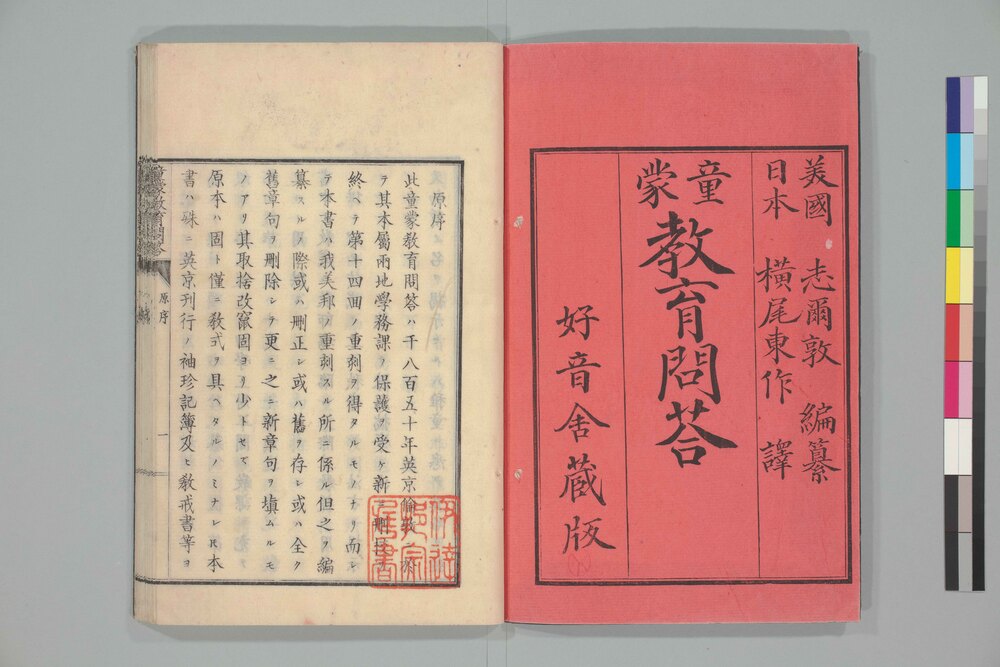 美國 志爾敦 編纂
日本 橫尾東作 譯
童蒙教育問荅
好音舍蔵版
原序
此童蒙教育問答ハ千八百五十年英京倫敦
ヲ其本屬兩地學務課ヲ保護ヲ受ケ新
終ヘテ第十四回ノ重刺ヲ得タルモノナリ而シ
テ本書ハ我美邦ノ重刺スル所ニ係ル但之ヲ編
纂スルノ際或ハ刪正シ或ハ舊ヲ存シ或ハ全ク
舊章句ヲ刪除シテ更ニ之ニ新章句ヲ塡ムルモ
ノアリ其取捨改竄固ヨリ少トセズ教課
原本ハ固ト僅ニ敎式ヲ具ヘタルノミナレ𪜈本
書ハ殊ニ英京刊行ノ袖珍記簿及ヒ敎戒書等ヨ
童蒙教育問答
原序
一